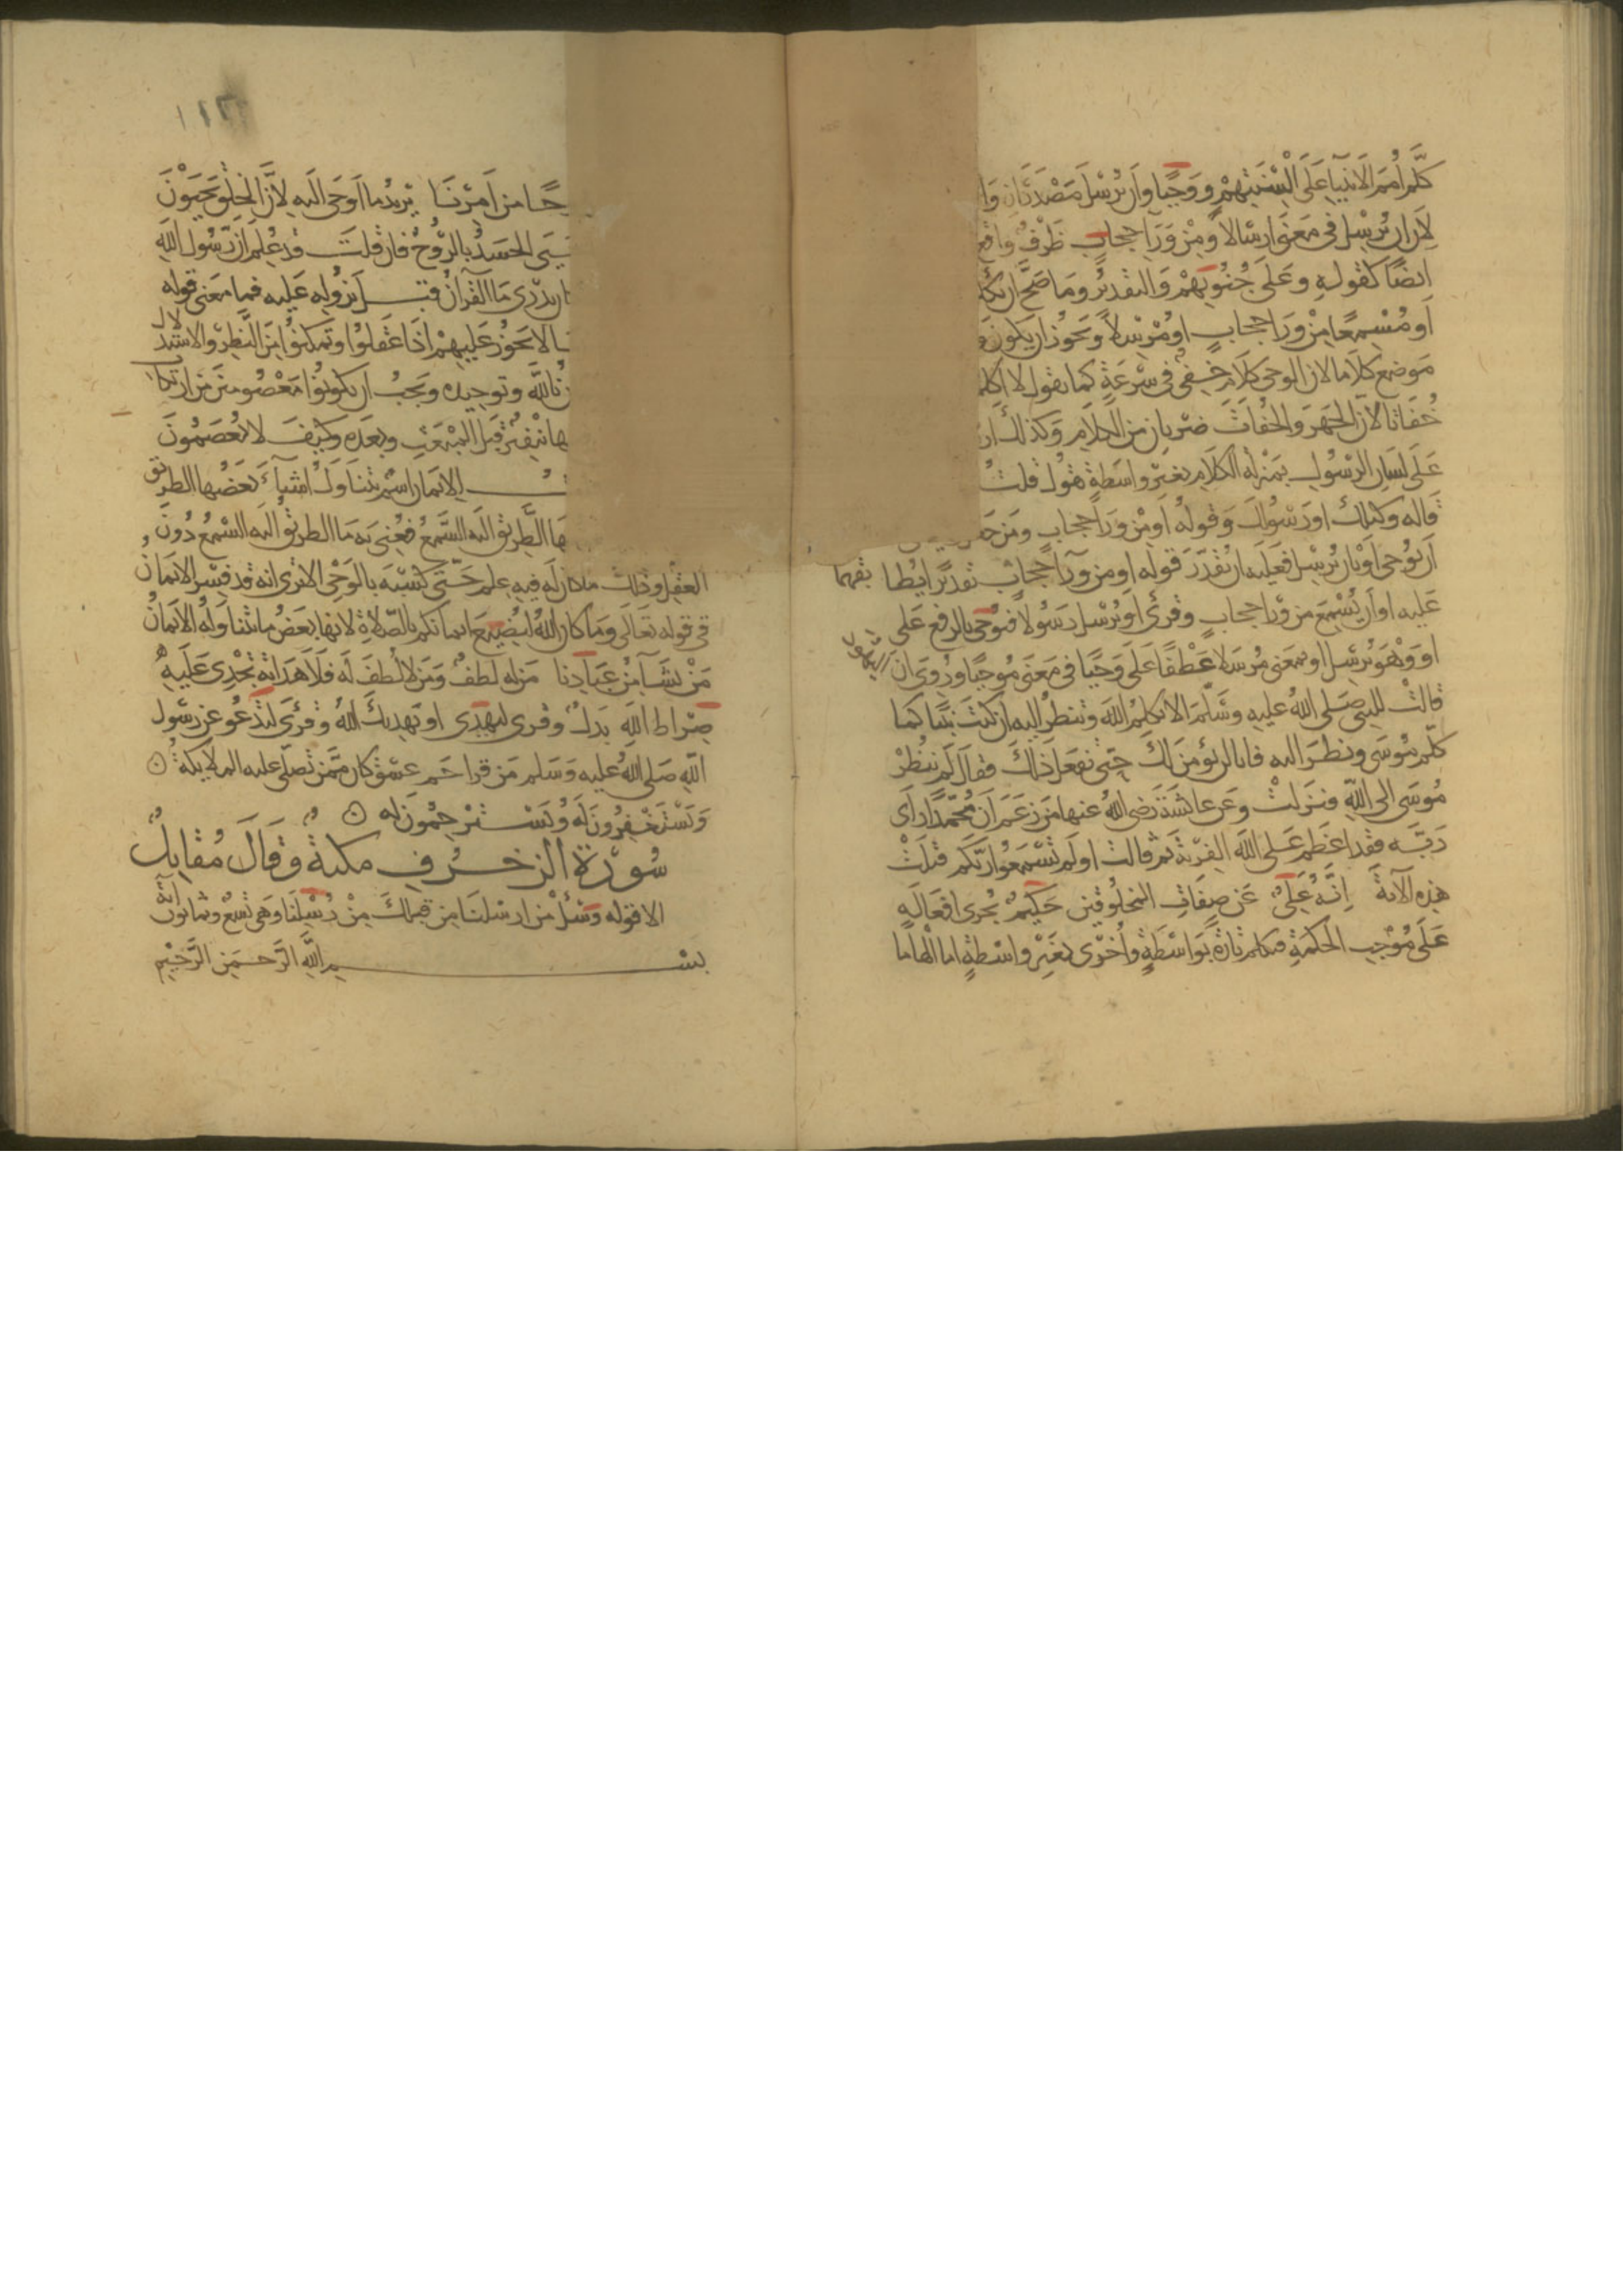 كلم امم الانبيا على السنتهم ووحيا وان نرسل مصدران
لان ان يرسل في معنى ارسالا ومن ورا حجاب ظرف واقع
ايضا كقوله وعلى جنوبهم والتقدير وما صح ان
او مسمعا من ورا حجاب او مرسلا ويجوز ان يكون
موضع كلاما لان الوحي كلام خفي في سرعة كما تقول لا
خفاتا لان الجهر والخفات ضربان من الكلام وكذلك
على لسان الرسول بمنزلة الكلام بغير واسطة تقول قلت
قاله وكيلك او رسولك وقوله او من ورا حجاب ومن
ان يوحي او بان يرسل فعليه ان يقدر قوله او من ورآ حجاب تقديرا يطابقهما
عليه او ان يسمع من ورا حجاب وقرئ او يرسل رسولا فيوحي بالرفع على
او وهو يرسل او بمعنى مرسلا عطفا على وحيا في معنى موحيا وروي ان اليهود
قالت للنبي صلى الله عليه وسلم الا تكلم الله وتنظر اليه ان كنت نبيا كما
كلم موسى ونظر اليه فانا لن نؤمن لك حتى تفعل ذلك فقال لم ينظر
موسى الى الله فنزلت وعن عائشة رضي الله عنها من زعم ان محمدا راى
ربه فقد اعظم على الله الفرية ثم قالت اولم تسمعوا ربكم فتلت
هذه الآية انه علي عن صفات المخلوقين حكيم يجري افعاله
على موجب الحكمة فيكلم تارة بواسطة واخرى بغير واسطة اما الهاما
حا من امرنا يريد ما اوحي اليه لان الخلق يحيون
يحيى الجسد بالروح فان قلت قد علم ان رسول الله
يدري ما القرآن قبل نزوله عليه فما معنى قوله
لا يجوز عليهم اذا عقلوا وتمكنوا من النظر والاستدلال
الله وتوحيده ويجب ان يكونوا معصومين من ارتكاب
قبل المبعث وبعده وكيف لا يعصمون
الايمان اسم يتناول اشيآء بعضها الطريق
الطريق اليه السمع فعني به ما الطريق اليه السمع دون
العقل وذلك ما كان له فيه علم حتى كسبه بالوحي الا ترى انه قد فسر الايمان
في قوله تعالى وما كان الله ليضيع ايمانكم بالصلاة لانها بعض ما يتناوله الايمان
من نشآ من عبادنا من له لطف ومن لا لطف له فلا هداية تجدي عليه
صراط الله بدل وقرى ليهدى او يهديك الله وقرئ لتدعو عن رسول
الله صلى الله عليه وسلم من قرا حم عسق كان ممن تصلي عليه الملايكة
ويستغفرون له ويسترحمون له
سورة الزخرف مكية وقال مقاتل
الا قوله وسئل من ارسلنا من قبلك من رسلنا وهي تسع وثمانون آية
بسم الله الرحمن الرحيم